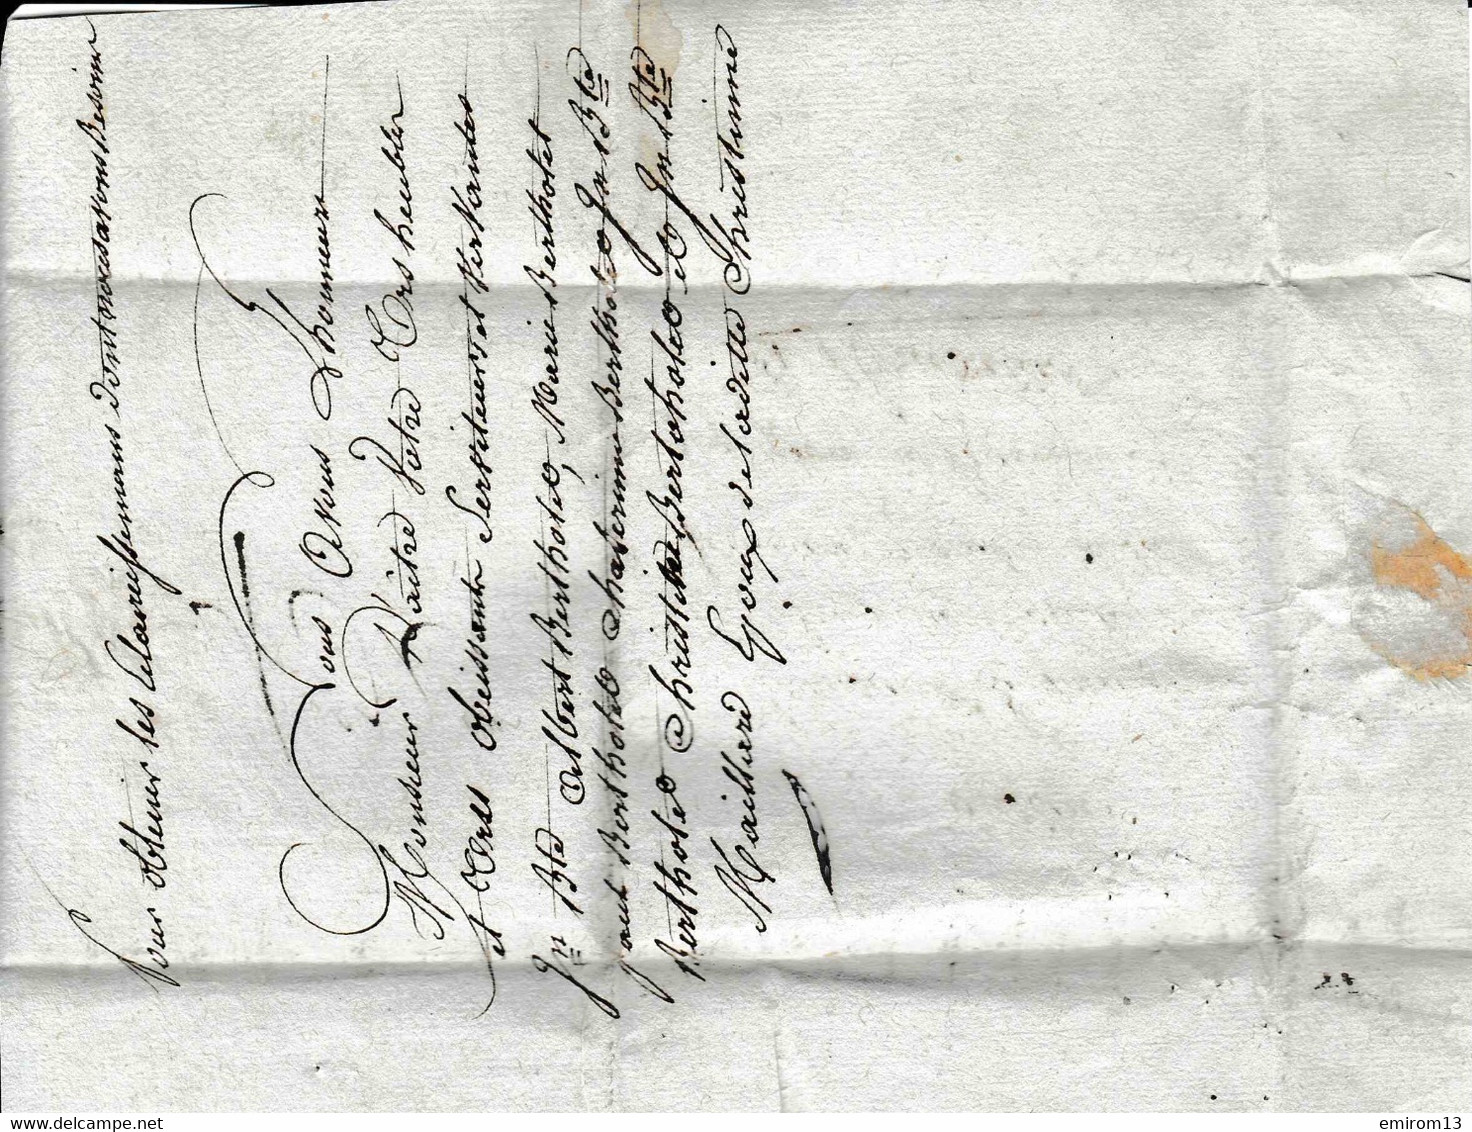 Pour obtenir les Éclaircissemens dont nous avons Besoins
Nous avons L'honneur
Monsieur D'être Votre Tres heubles
et Tres obeissants Serviteurs et Servantes
Jn Bte Albert Berthole, Marie Bertholet
Paul Berthole Chaterinne Berthole Jn Bte
Berthole Christine Berthole et Jn Bte
Maillard Epoux de laditte Christinne
www.delcampe.net
emirom13